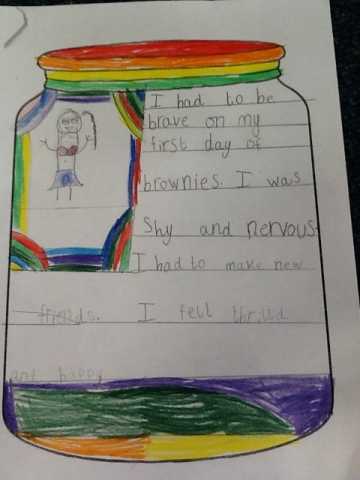 I had to be
brave on my
first day of
brownies. I was
shy and nervous
I had to make new
friends. I felt thrilld
and happy